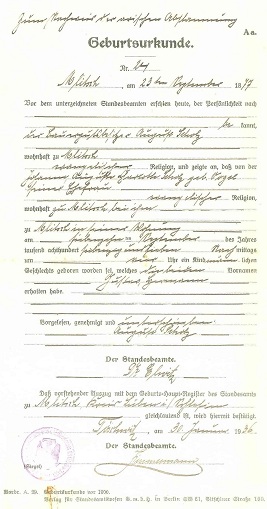 Zum Nachweis der arischen Abstammung
A a.
Geburtsurkunde.
Nr. 24
Mlitsch, am 23ten September 1877
Vor dem unterzeichneten Standesbeamten erschien heute, der Persönlichkeit nach
be kannt,
der August Scholz
wohnhaft zu Mlitsch
evangelischer Religion, und zeigte an, daß von der
geb. Vogel
seiner Ehefrau
evangelischer Religion,
wohnhaft zu Mlitsch bei ihm
zu Mlitsch in seiner Wohnung
am September des Jahres
tausend achthundert siebenzig und sieben Nachmittags
um vier Uhr ein Kind männlichen
Geschlechts geboren worden sei, welches Vornamen
Gustav Hermann
erhalten habe.
Vorgelesen, genehmigt und unterschrieben
August Scholz
Der Standesbeamte.
Daß vorstehender Auszug mit dem Geburts-Haupt-Register des Standesamts
zu Mlitsch Kreis Lüben i/Schlesien
gleichlautend ist, wird hiermit bestätigt.
am Januar 1936
Der Standesbeamte.
(Siegel)
Geburtsurkunde vor 1900.
Verlag für Standesamtswesen G.m.b.H. in Berlin SW 61, Gitschiner Straße 109.